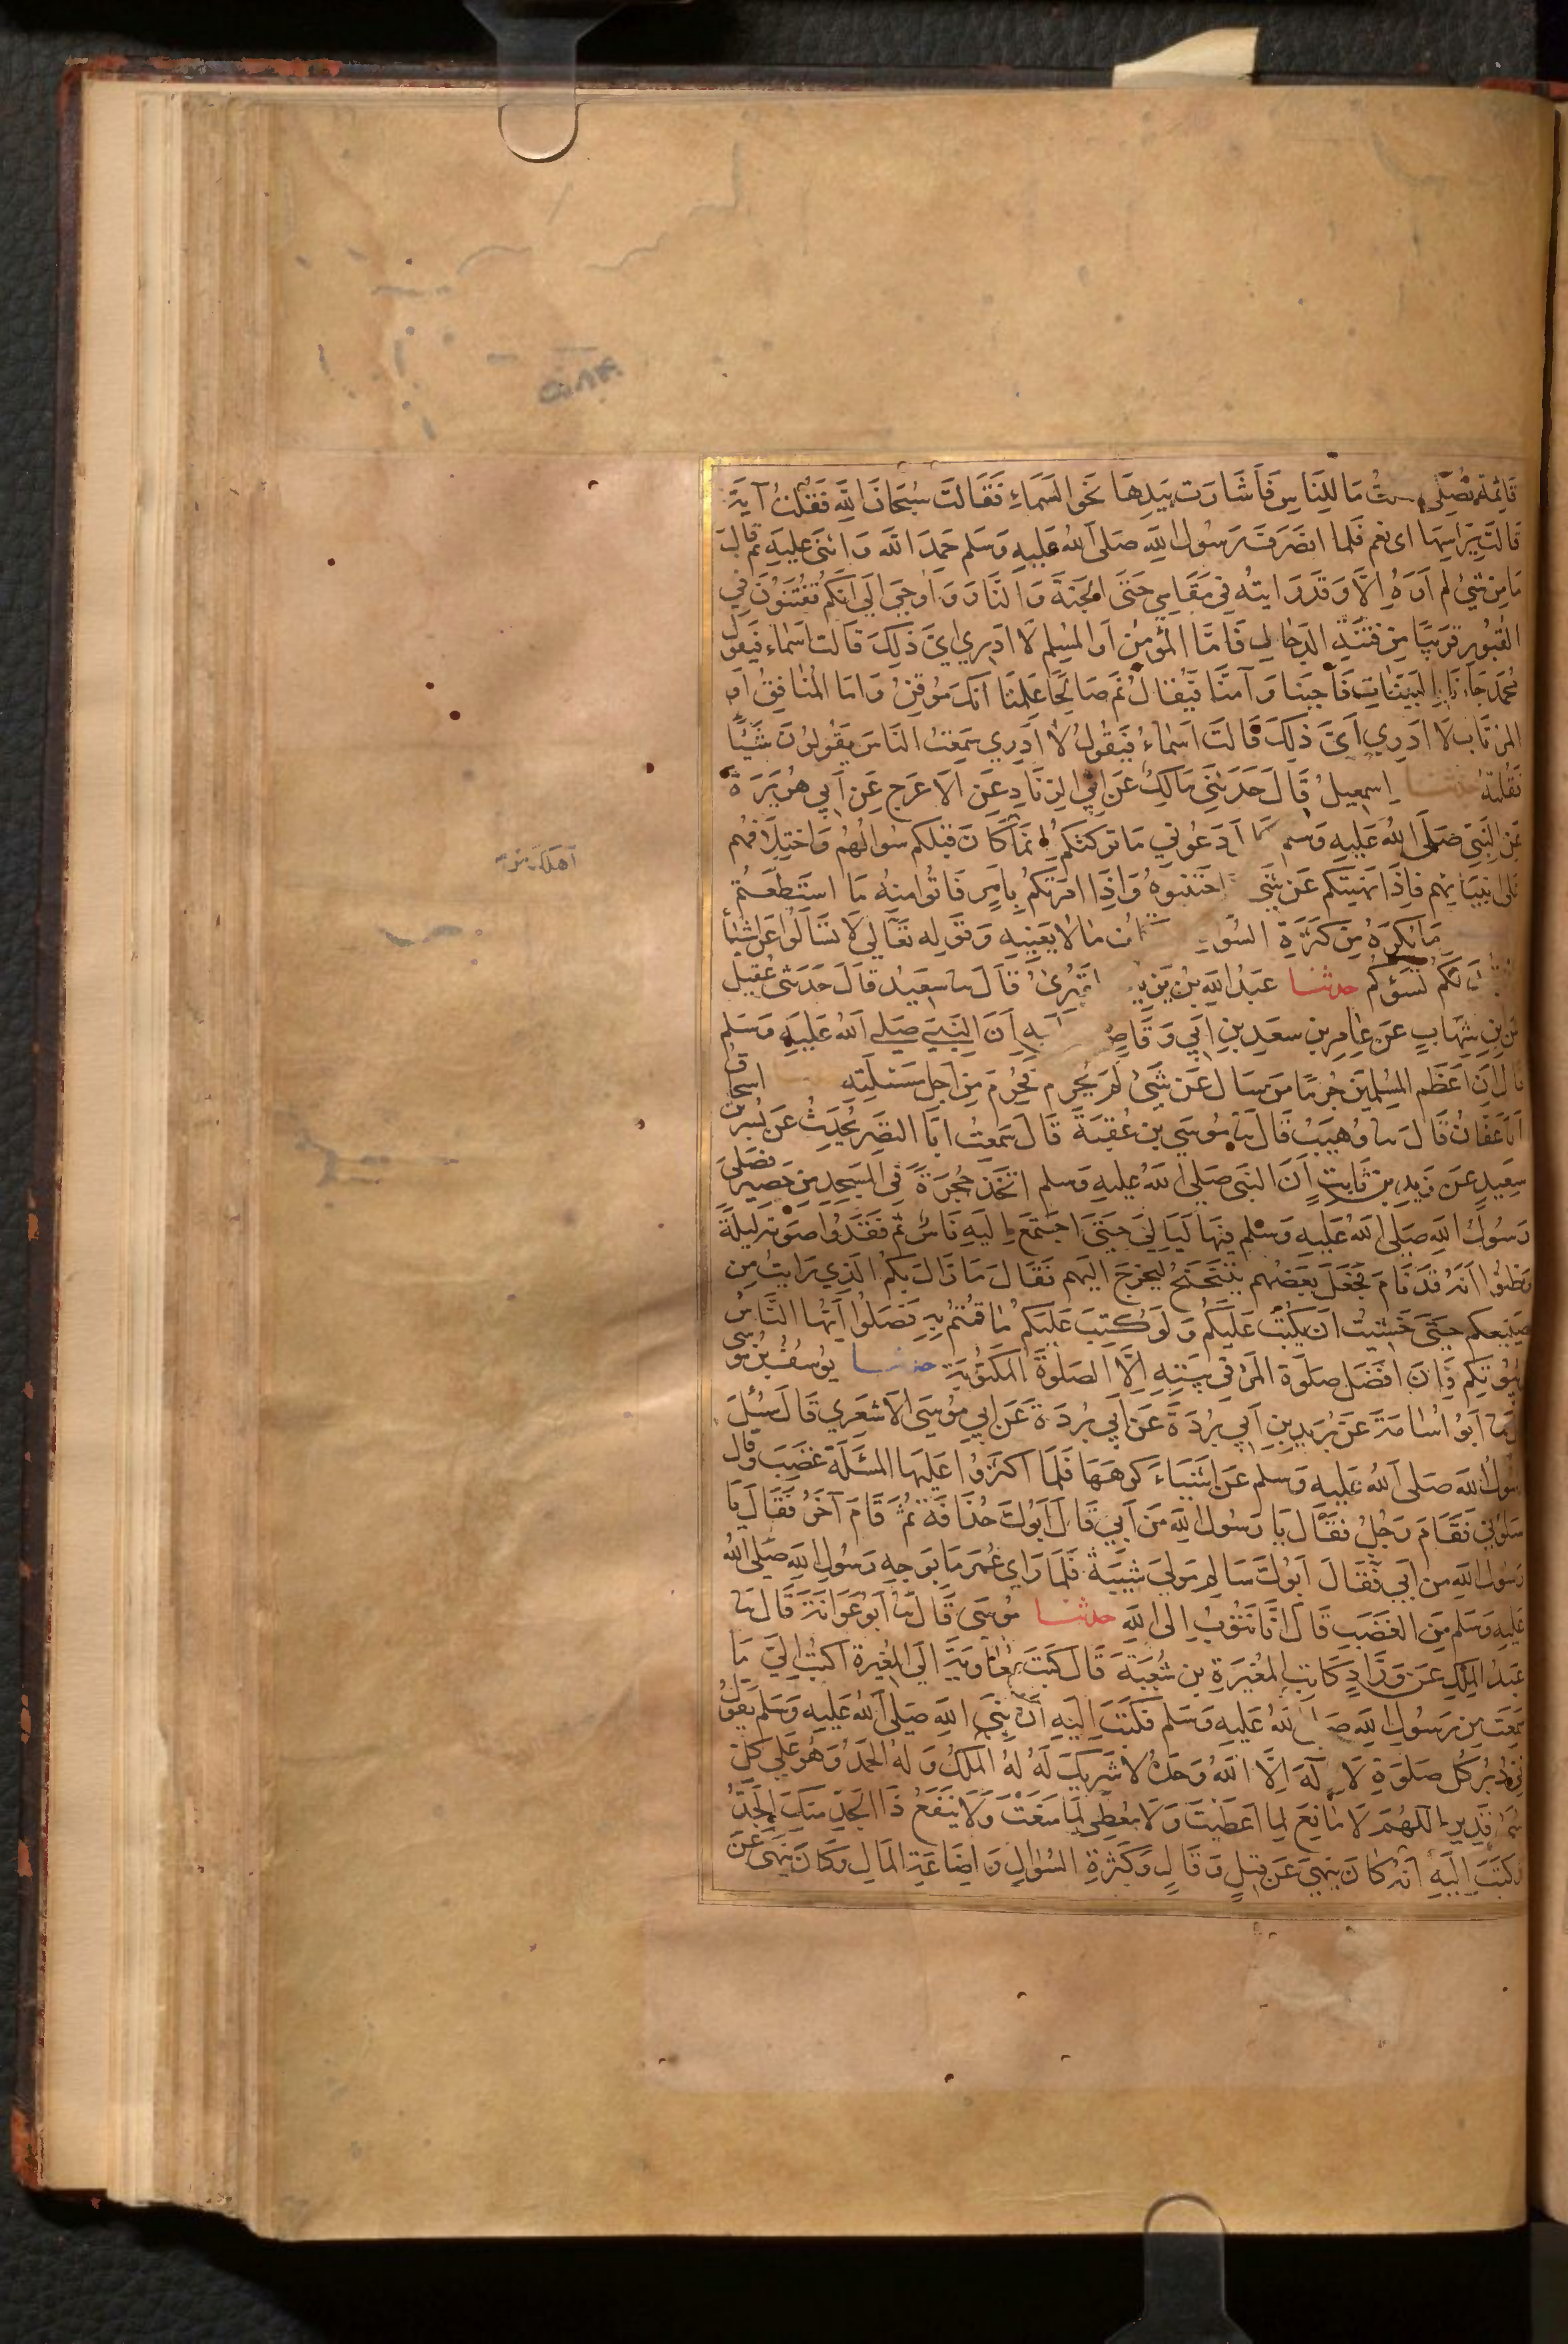 قَائِمَةٌ تُصَلِّي فقلت مَا لِلنَّاسِ فَأَشَارَت بِيَدِهَا نَحوَ السَّمَاءِ فَقَالَتْ سُبْحَانَ اللَّهِ فَقُلْتُ آيَةٌ
قَالَتْ بِرَأسِهَا اى نعم فَلَما انصَرَفَ رَسُولُ اللهِ صَلَى اللهُ عَلَيهِ وَسَلم حَمِدَ اللهَ وَاثنَى عَلَيهِ ثم قال
مَا مِن شَيْءٍ لم أَرَهُ إِلَّا وَقَد رَايتُه فِي مَقَامِي حَتَّى الْجَنَةَ وَالنَّارَ وَاُوحِيَ اِلَيَّ اَنَّكُم تُفْتَنُونَ فِي
القُبُورِ قَرِيبًا مِن فِتْنَةِ الدَجَّالِ فَامَّا المُؤمِنُ اَوِ المُسْلِم لَا اَدرِي اىَّ ذَلِكَ قَالَت اَسْمَاء فَيَقُول
مُحَمد جَاءَنَا بِالبَيِّنَاتِ فَأَجَبنَا وَآمَنَّا فَيُقَالُ نَم صَالِحًا عَلِمْنَا اَنَّكَ مُوقِنٌ وَامَا المُنَافِقُ اَوِ
المُرتَابُ لَا ادرِي اَىَّ ذَلِكَ قَالَت اَسْمَاءُ فَيَقُولُ لَا اَدرِي سَمِعْتُ النَّاسَ يَقُولُونَ شَيْئًا
فَقُلتُهُ حدثنا اِسمعِيلُ قَالَ حَدثَنِي مَالِكٌ عَن اَبِي الزِّنَادِ عَنِ الاَعرَج عَن اَبِي هُرَيرَةَ
عَنِ النَّبِيّ صَلَى اللهُ عَلَيهِ وَسلم دَعُونِي مَا تَرَكتُكُم اِنَّمَا كَانَ قَبلَكم سُوَالُهُم وَاختِلَافُهُم
عَلَى اَنبِيَائِهم فَاِذَا نَهَيتُكُم عَن شَيْءٍ اجتَنِبُوهُ وَاِذَا اَمَرتُكُم بِاَمرٍ فَاتُوا مِنهُ مَا استَطَعْتُم
مَا يُكرَهُ مِن كَثرَةِ السُّوَالِ مَا لَا يَعنِيهِ وَقَولِه تَعَالى لَا تَسَالُوا عَن اشْيَاء
لَكُم تَسُؤكُم حدثنا عَبدُ اللهِ بنُ يَزِيدَ المُقرِئ قَالَ نا سَعِيدٌ قَالَ حَدثَنى عُقَيل
عَنِ ابنِ شِهَابٍ عَن عَامِرِ بنِ سَعدِ بنِ اَبِي وَقَّاصٍ اَبِيهِ اَنَّ النَّبِيَّ صَلى اللهُ عَلَيهِ وَسَلم
قَالَ اِنَّ اَعظَمَ المُسْلِمِينَ جُرمًا مَن سَالَ عَن شَيْءٍ لَم يُحَرَم فَحُرِمَ مِن اَجلِ مَسْئَلَتِهِ اسحَاق
اَنَا عَفَّانُ قَالَ نا وُهَيبٌ قَالَ نا مُوسَى بنُ عُقبَةَ قَالَ سَمِعتُ اَبَا النَّضرِ يُحَدِّثُ عَن بُسرِ بن
سَعِيدٍ عَن زَيدِ بنِ ثَابِتٍ اَنَّ النَّبِيَ صَلَى اللهُ عَلَيهِ وَسلم اتَّخَذَ حُجرَةً فِي المَسجِدِ مِن حَصِيرٍ فصَلّى
رَسُولُ اللهِ صَلَى اللهُ عَلَيهِ وَسَلم فِيهَا لَيَالِيَ حَتَّى اجتَمَعَ اِلَيهِ نَاسٌ ثُم فَقَدُوا صَوتَه لَيلَةً
فَظَنُّوا اَنَّهُ قَد نَامَ فَجَعَلَ بَعضُهُم يَتَنَحنَحُ لِيَخرُجَ اِلَيهِم فَقَالَ مَا زَالَ بِكُمُ الَّذِي رَايتُ مِن
صَنِيعِكُم حَتَّى خَشِيتُ اَن يُكتَبَ عَلَيكُم وَلَو كُتِبَ عَلَيكُم مَا قُمتُم بِهِ فَصَلُّوا اَيُّهَا النَّاسُ
بُيُوتِكُم فَاِنَّ افضَلَ صَلَوةِ المَرْءِ فِي بَيتِهِ اِلَّا الصَلوةَ المَكتُوبَةَ حدثنا يُوسُفُ بنُ مُوسى
نا اَبُو اُسَامَةَ عَن بُرَيدِ بنِ اَبِي بُردَةَ عَن اَبِي بُردَةَ عَن اَبِي مُوسَى الاَشعَرِي قَالَ سُئِلَ
رَسُولُ اللهِ صَلى اللهُ عَلَيهِ وَسَلم عَن اَشيَاءَ كَرِهَهَا فَلَمَّا اَكثَرُوا عَلَيهَا المَسْئَلَةَ غَضِبَ وَقَال
سَلُونِي فَقَامَ رَجُلٌ فَقَالَ يَا رَسُولَ اللهِ مَن اَبِي قَالَ اَبُوكَ حُذَافَةُ ثُمَّ قَامَ آخَرُ فَقَالَ يَا
رَسُولَ اللهِ مَن اَبِي فَقَالَ اَبُوكَ سَالِم مَولَى شَيبَةَ فَلَمَّا رَاى عُمَر مَا بِوَجهِ رَسُولِ اللهِ صَلَى اللهُ
عَلَيهِ وَسَلم مِنَ الغَضَبِ قَالَ اِنَّا نَتُوبُ اِلَى اللهِ حدثنا مُوسَى قَالَ نا اَبُو عَوَانَةَ قَالَ نا
عَبدُ المَلِكِ عَن وَرَّادٍ كَاتِبِ المُغِيرَةِ بنِ شُعبَةَ قَالَ كَتَبَ مُعَاوِيَةُ اِلَى المُغِيرَةِ اكتُب اِلَيَّ مَا
سَمِعتَ مِن رَسُولِ اللهِ صَلى اللهُ عَلَيهِ وَسَلم فَكَتَبَ اِلَيهِ اَنَّ نَبِيَّ اللهِ صَلى اللهُ عَلَيهِ وَسَلم يَقُولُ
فِي دُبُرِ كُلِّ صَلوةٍ لَا اِلَهَ اِلَّا اللهُ وَحدَهُ لَا شَرِيكَ لَهُ لَهُ المُلكُ وَلَهُ الحَمدُ وَهُوَ عَلَى كُلِّ
شَيْءٍ قَدِير اللهُمَّ لَا مَانِعَ لِمَا اَعطَيتَ وَلَا مُعطِيَ لِمَا مَنَعتَ وَلَا يَنفَعُ ذَا الجَدِّ مِنكَ الجَدُّ
وَكَتَبَ اِلَيهِ اَنَّهُ كَانَ يَنهَى عَن قِيلٍ وَقَالٍ وَكَثرَةِ السُّوَالِ وَاِضَاعَةِ المَالِ وَكَانَ يَنهَى عَن
اهلك من